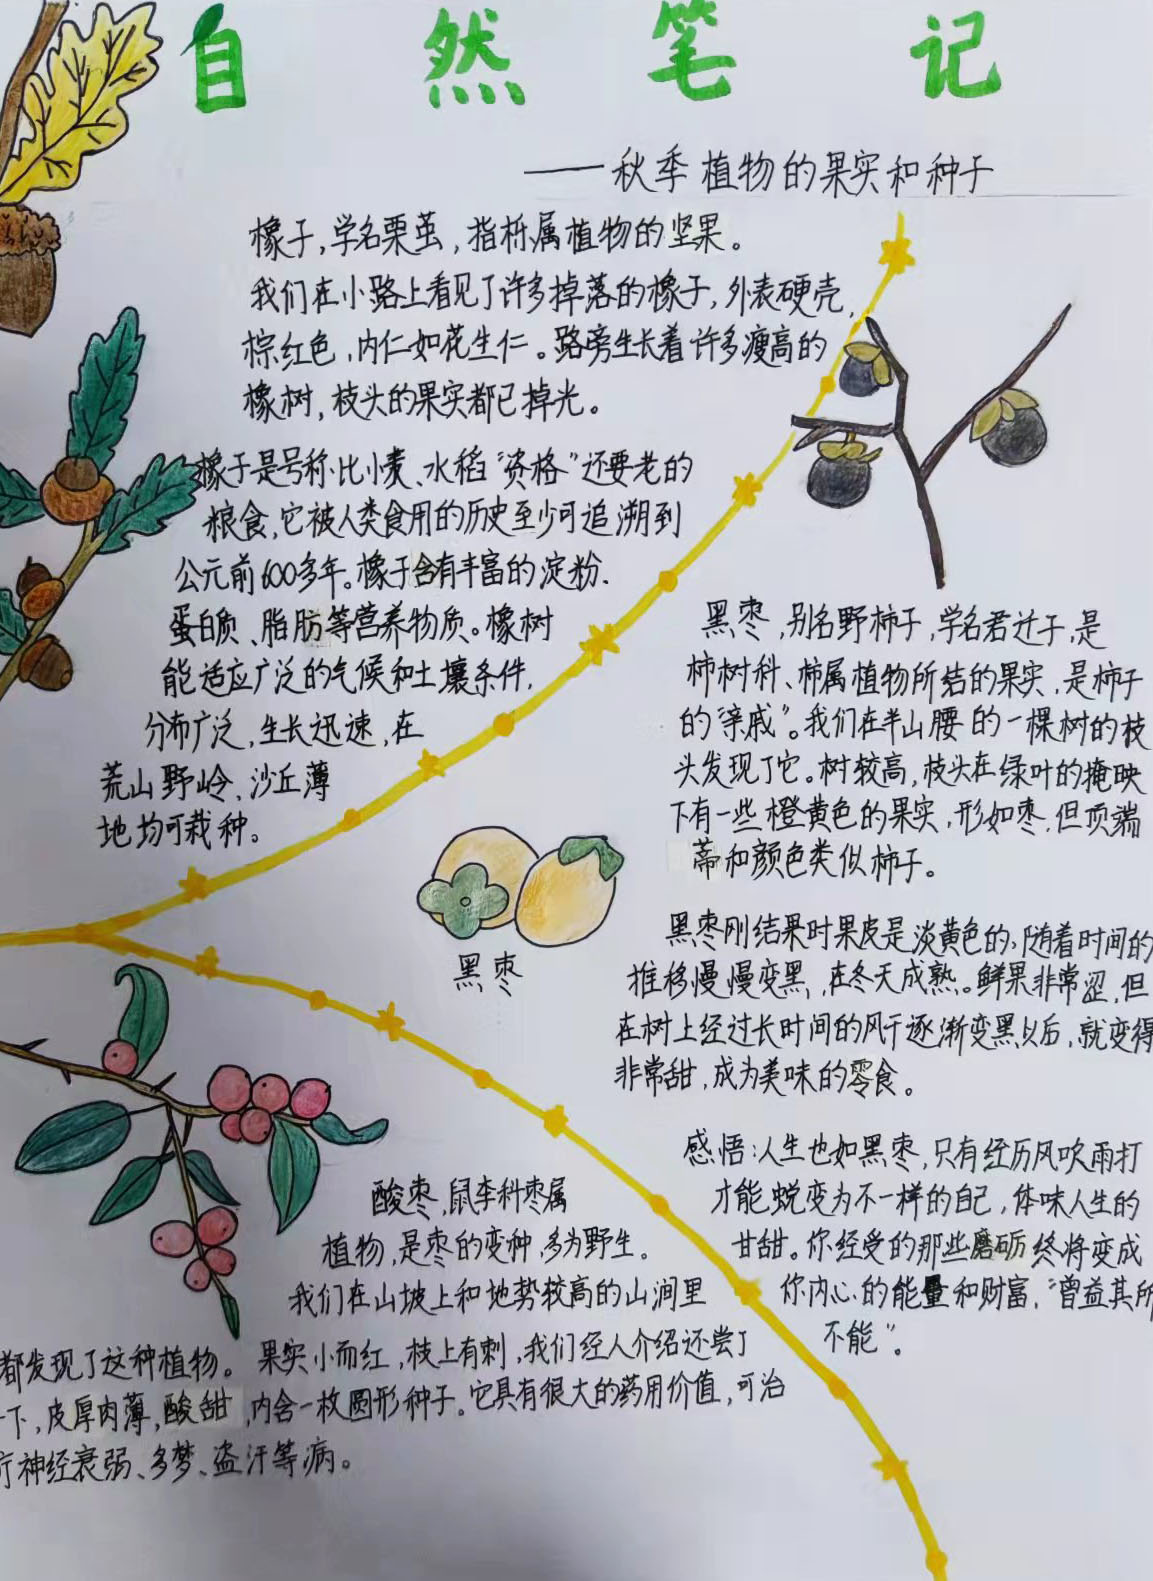 自然笔记
——秋季植物的果实和种子
橡子,学名栗茧,指栎属植物的坚果。
我们在小路上看见了许多掉落的橡子,外表硬壳,
棕红色,内仁如花生仁。路旁生长着许多瘦高的
橡树,枝头的果实都已掉光。
橡子是号称比小麦、水稻“资格”还要老的
粮食,它被人类食用的历史至少可追溯到
公元前600多年。橡子含有丰富的淀粉、
蛋白质、脂肪等营养物质。橡树
能适应广泛的气候和土壤条件,
分布广泛,生长迅速,在
荒山野岭、沙丘薄
地均可栽种。
黑枣,别名野柿子,学名君迁子,是
柿树科、柿属植物所结的果实,是柿子
的“亲戚”。我们在半山腰的一棵树的枝
头发现了它。树较高,枝头在绿叶的掩映
下有一些橙黄色的果实,形如枣,但顶端
蒂和颜色类似柿子。
黑枣
黑枣刚结果时果皮是淡黄色的,随着时间的
推移慢慢变黑,在冬天成熟。鲜果非常涩,但
在树上经过长时间的风干逐渐变黑以后,就变得
非常甜,成为美味的零食。
感悟:人生也如黑枣,只有经历风吹雨打
才能蜕变为不一样的自己,体味人生的
甘甜。你经受的那些磨砺终将变成
你内心的能量和财富,“曾益其所
不能”。
酸枣,鼠李科枣属
植物,是枣的变种,多为野生。
我们在山坡上和地势较高的山涧里
都发现了这种植物。果实小而红,枝上有刺,我们经人介绍还尝了
一下,皮厚肉薄,酸甜,内含一枚圆形种子。它具有很大的药用价值,可治
疗神经衰弱、多梦、盗汗等病。